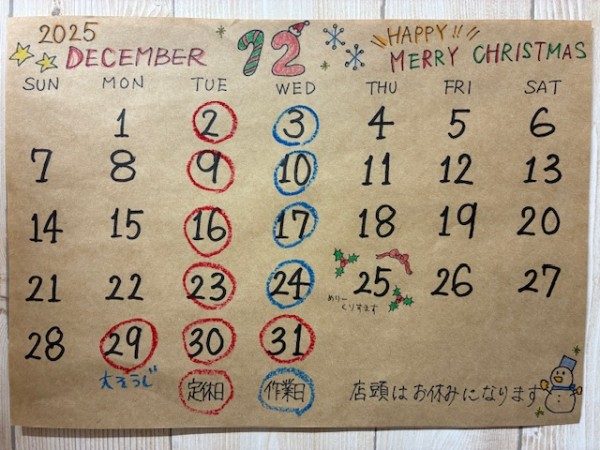 2025
DECEMBER 12 HAPPY!!
MERRY CHRISTMAS
SUN MON TUE WED THU FRI SAT
1 2 3 4 5 6
7 8 9 10 11 12 13
14 15 16 17 18 19 20
21 22 23 24 25 26 27
めりー
くりすます
28 29 30 31
大そうじ 定休日 作業日 店頭はお休みになります